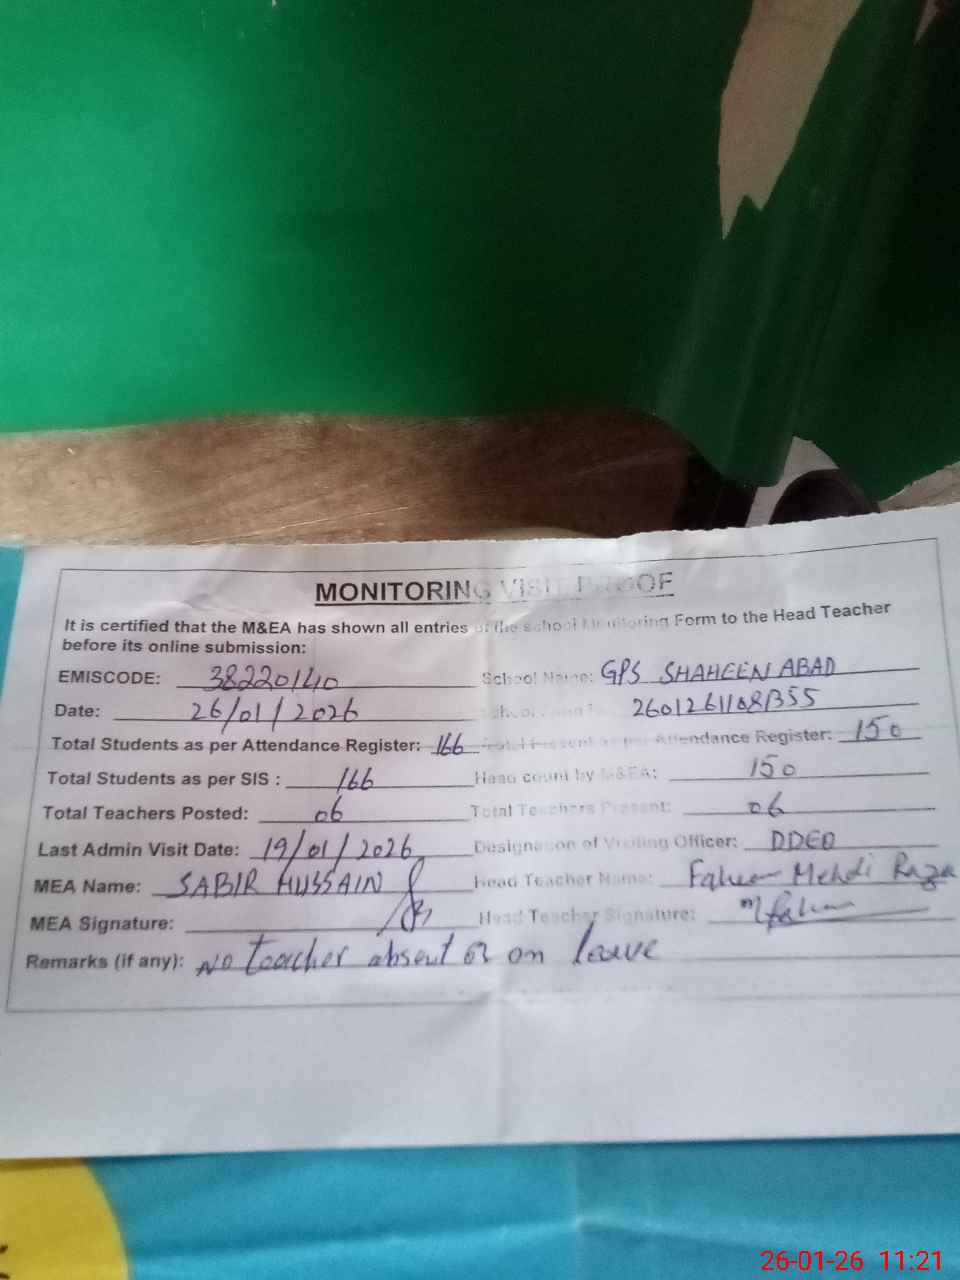 MONITORING VISIT PROOF
It is certified that the M&EA has shown all entries of the school Monitoring Form to the Head Teacher
before its online submission:
EMISCODE: 38220140 School Name: GPS SHAHEEN ABAD
Date: 26/01/2026 26012611081355
Total Students as per Attendance Register: 166 Total Present as per Attendance Register: 150
Total Students as per SIS : 166 Head count by M&EA: 150
Total Teachers Posted: 06 Total Teachers Present: 06
Last Admin Visit Date: 19/01/2026 Designation of Visiting Officer: DDEO
MEA Name: SABIR HUSSAIN Head Teacher Name: Faheem Mehdi Raza
MEA Signature: Head Teacher Signature:
Remarks (if any): No teacher absent or on leave
26-01-26 11:21